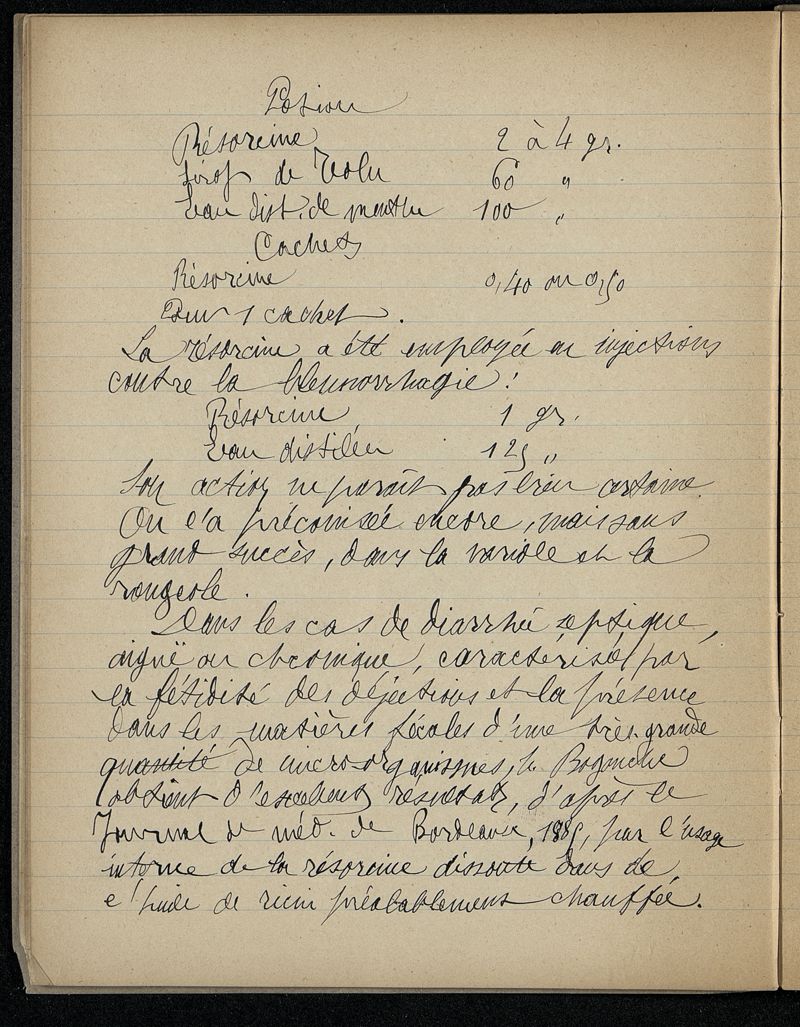 Potion
Résorcine 2 à 4 gr.
Sirop de Tolu 60 "
Eau dist. de menthe 100 "
Cachets
Résorcine 0,40 ou 0,50
Pour 1 cachet.
La résorcine a été employée en injections
contre la blennorrhagie :
Résorcine 1 gr.
Eau distillée 125 "
Son action ne paraît pas bien certaine.
On l'a préconisée encore, mais sans
grand succès, dans la variole et la
rougeole.
Dans les cas de diarrhée septique,
aiguë ou chronique, caractérisé par
la fétidité des déjections et la présence
dans les matières fécales d'une très grande
quantité de micro-organismes, le
obtient d'excellents résultats, d'après le
Journal de méd. de Bordeaux, 1885, par l'usage
interne de la résorcine dissoute dans de
l'huile de ricin préalablement chauffée.